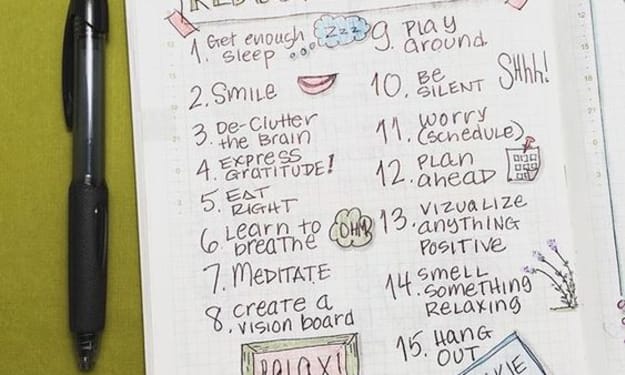 1. Get enough
sleep
zzz
2. SMILE
3. De-Clutter
the Brain
4. EXPRESS
GRATITUDE!
5. EAT
RIGHT
6. Learn to
breathe
OHM
7. MEDITATE
8. create a
vision board
RELAX!
9. PLAY
around.
10. BE
SILENT
SHhh!
11. worry
(schedule)
12. PLAN
ahead
13. VIZUALIZE
anything
POSITIVE
14. smell
something
RELAXING
15. HANG
OUT